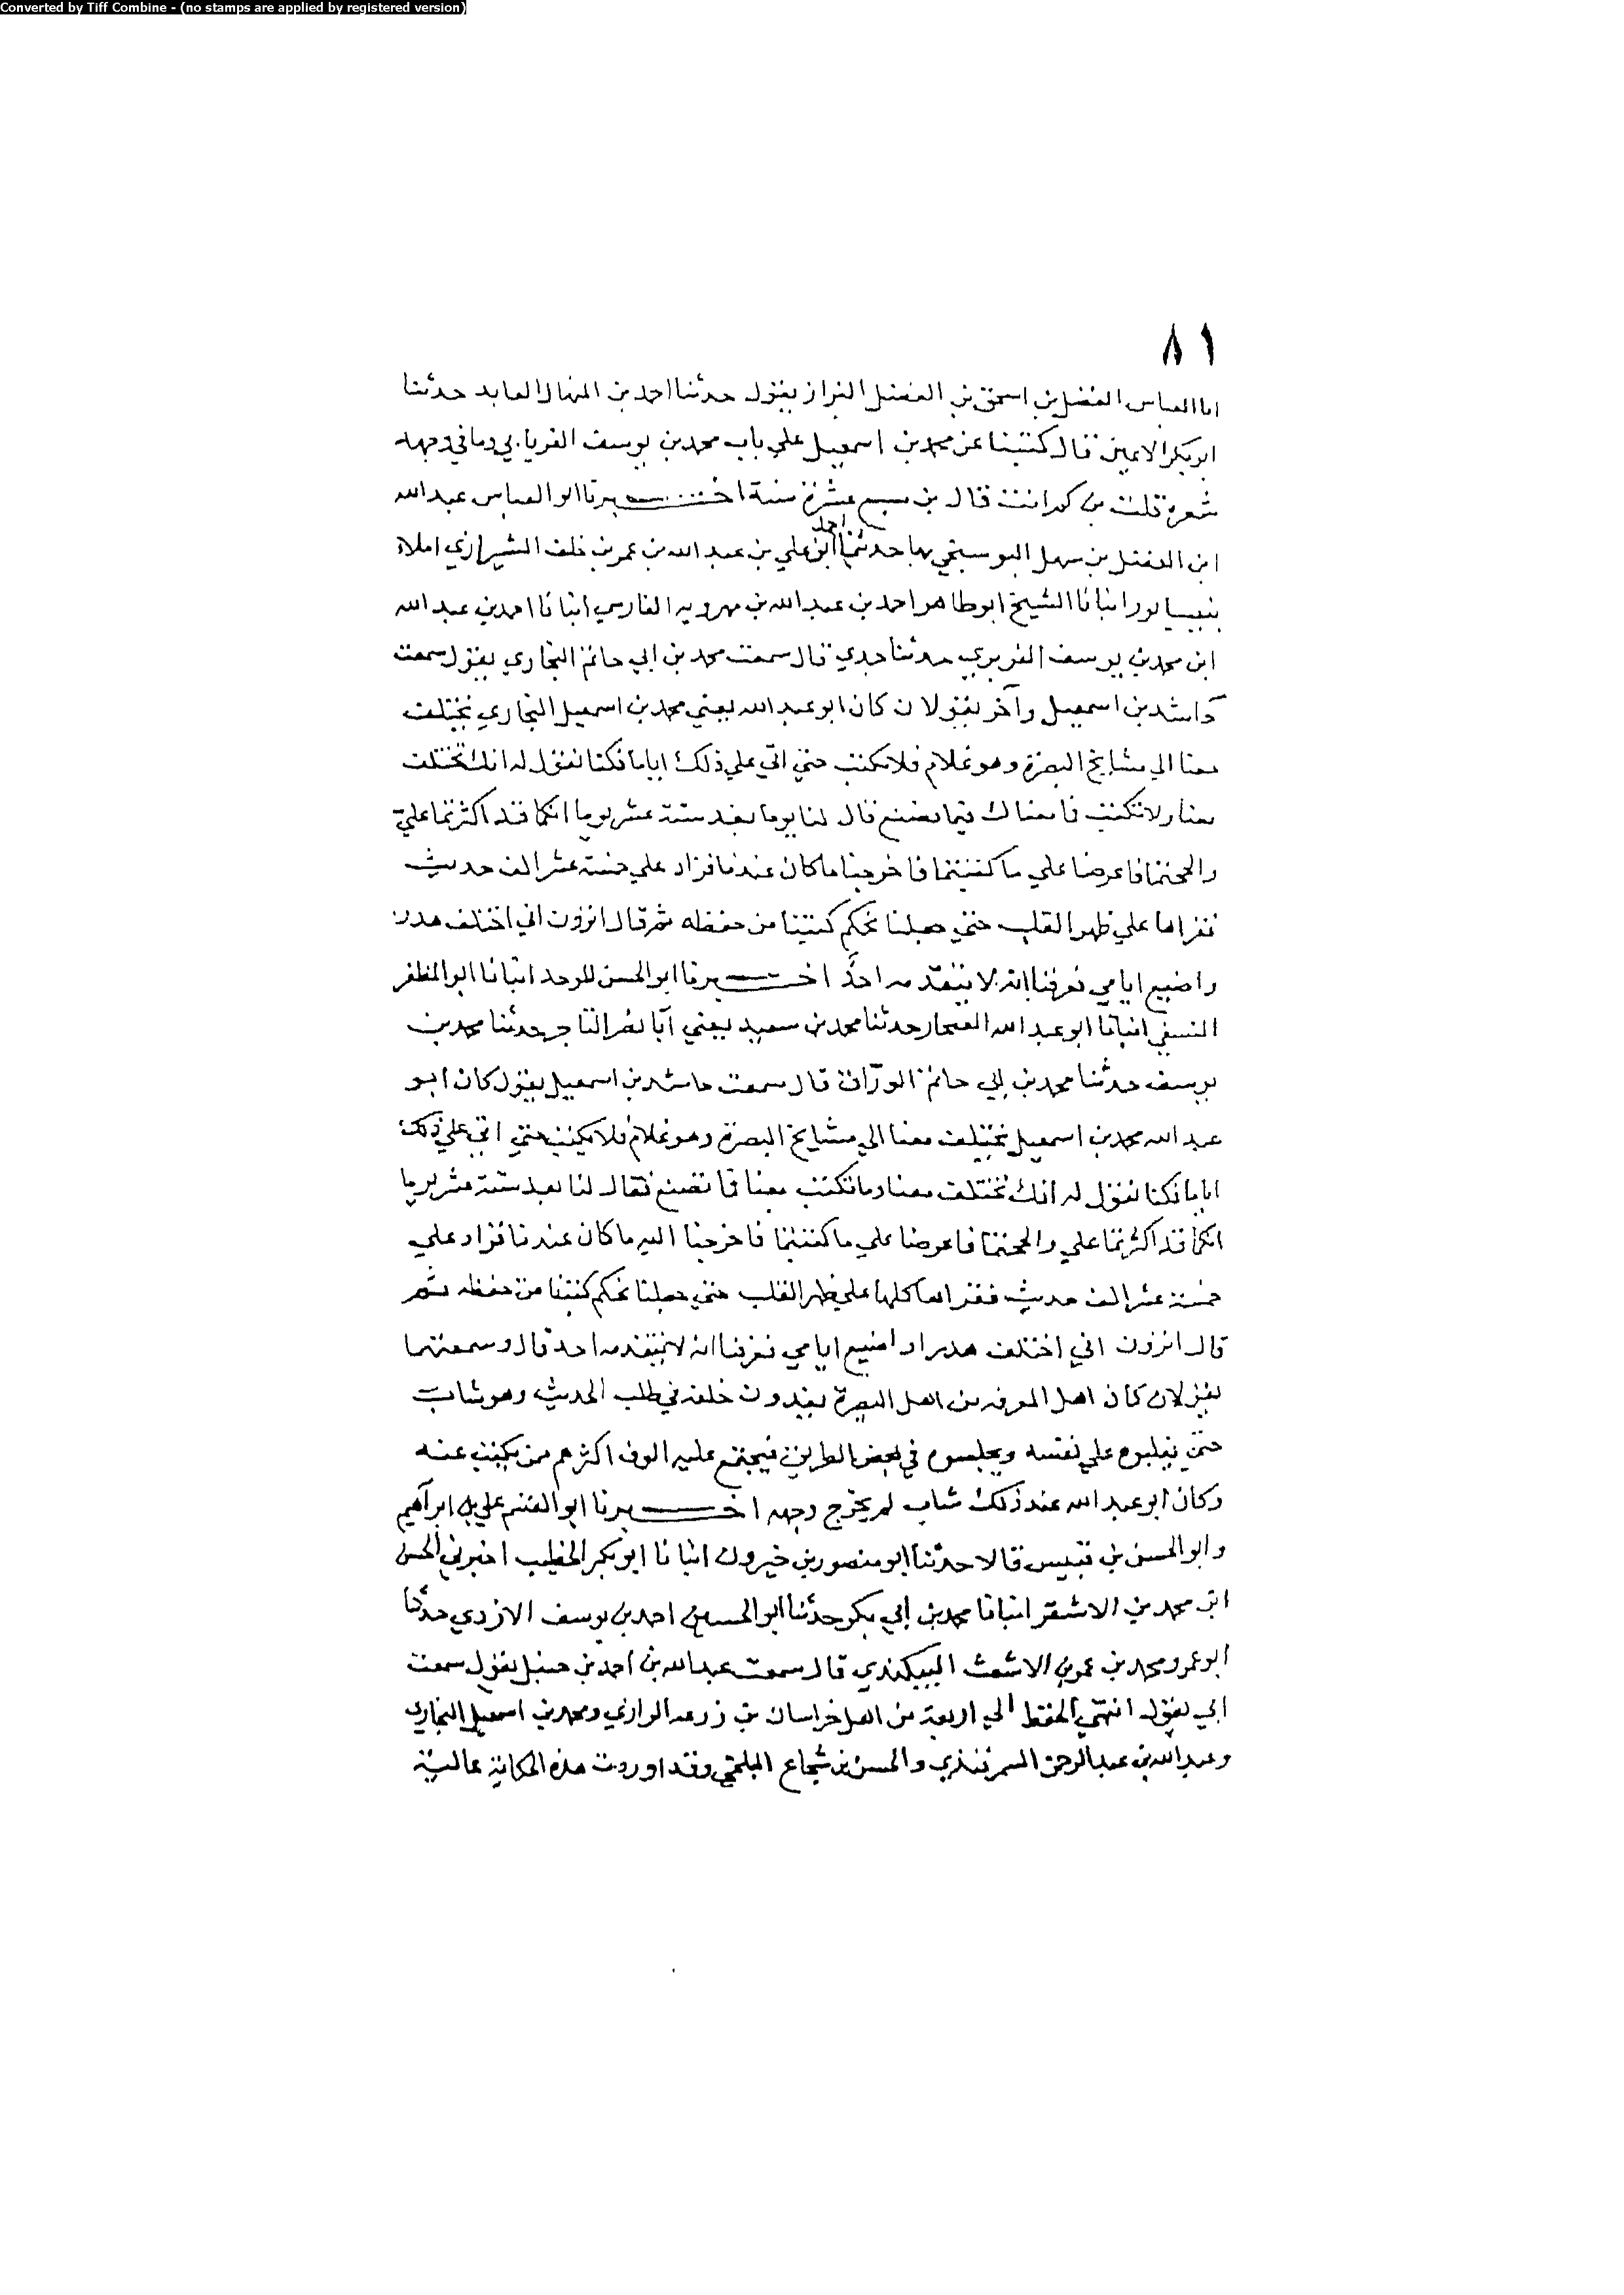 Converted by Tiff Combine - (no stamps are applied by registered version)
٨١
ابا العباس الفضل بن اسحق بن الفضل البزاز يقول حدثنا احمد بن المنهال العابد حدثنا
ابو بكر الاعين قال كتبنا عن محمد بن اسمعيل علي باب محمد بن يوسف الفريابي وما في وجهه
شعرة قلت بن كم انت قال بن سبع عشرة سنة اخبرنا ابو العباس عبد الله
ابن الفضل بن سهل البوسنجي بها حدثنا احمد بن علي بن عبد الله بن عمر بن خلف الشيرازي املاء
بنيسابور انبانا الشيخ ابو طاهر احمد بن عبد الله بن مهرويه الفارسي انبانا احمد بن عبد الله
ابن محمد بن يوسف الفربري حدثنا جدي قال سمعت محمد بن ابي حاتم البخاري يقول سمعت
حاشد بن اسمعيل وآخر يقولان كان ابو عبد الله يعني محمد بن اسمعيل البخاري يختلف
معنا الي مشايخ البصرة وهو غلام فلا يكتب حتي اتي علي ذلك اياما فكنا نقول له انك تختلف
معنا ولا تكتب فما معناك فيما تصنع قال لنا يوما بعد ستة عشر يوما انكما قد اكثرتما عليّ
والححتما فاعرضا علي ما كتبتما فاخرجنا ما كان عندنا فزاد علي خمسة عشر الف حديث
فقراها علي ظهر القلب حتي جعلنا نحكم كتبنا من حفظه ثم قال اترون اني اختلف هدرا
واضيع ايامي فعرفنا انه لا يتقدّمه احدٌ اخبرنا ابو الحسن الموحد انبانا ابو المظفر
النسفي انبانا ابو عبد الله الغنجار حدثنا محمد بن سعيد يعني ابا نصر التاجر حدثنا محمد بن
يوسف حدثنا محمد بن ابي حاتم الورّاق قال سمعت حاشد بن اسمعيل يقول كان ابو
عبد الله محمد بن اسمعيل يختلف معنا الي مشايخ البصرة وهو غلام فلا يكتب حتي اتي علي ذلك
ايام فكنا نقول له انك تختلف معنا وما تكتب معنا فما تصنع فقال لنا بعد ستة عشر يوما
انكما قد اكثرتما علي والححتما فاعرضا علي ما كتبتما فاخرجنا اليه ما كان عندنا فزاد علي
خمسة عشر الف حديث فقراها كلها علي ظهر القلب حتي جعلنا نحكم كتبنا من حفظه ثم
قال اترون اني اختلف هدرا واضيع ايامي فعرفنا انه لا يتقدمه احد قال وسمعتهما
يقولان كان اهل المعرفه من اهل البصرة يعدون خلفه في طلب الحديث وهو شاب
حتي يغلبوه علي نفسه ويجلسوه في بعض الطريق فيجتمع عليه الوف اكثرهم ممن يكتب عنه
وكان ابو عبد الله عند ذلك شاب لم يخرج وجهه اخبرنا ابو القسم علي بن ابراهيم
وابو الحسن بن قبيس قالا حدثنا ابو منصور بن خيرون انبانا ابو بكر الخطيب اخبرني الحسن
ابن محمد بن الاشقر انبانا محمد بن ابي بكر حدثنا ابو الحسين احمد بن يوسف الازدي حدثنا
ابو عمرو محمد بن عمر بن الاشعث البيكندي قال سمعت عبد الله بن احمد بن حنبل يقول سمعت
ابي يقول انتهي الحفظ الي اربعة من اهل خراسان بن زرعه الرازي ومحمد بن اسمعيل البخاري
وعبد الله بن عبد الرحمن السمرقندي والحسن بن شجاع البلخي وقد اوردت هذه الحكاية عالية